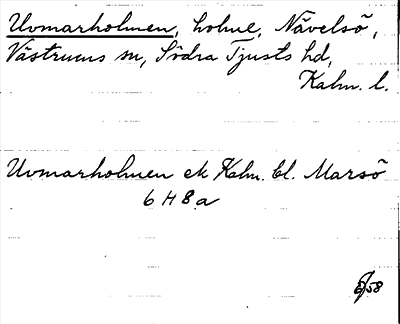 Uvmarholmen, holme, Nävelsö,
Västrums sn, Södra Tjusts hd,
Kalm. l.
Uvmarholmen ek Kalm. bl. Marsö
6 H 8 a
58